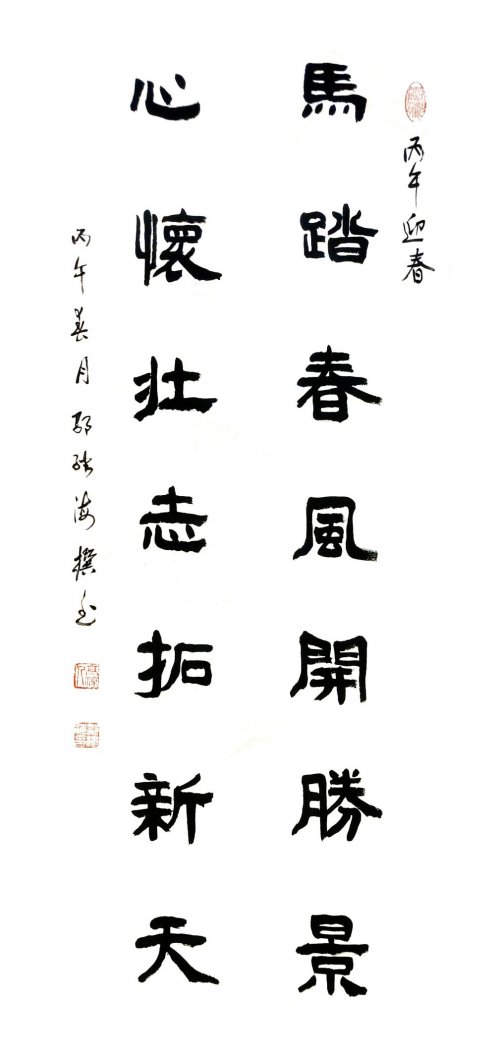 丙午迎春
馬踏春風開勝景
心懷壯志拓新天
丙午美月 海撰書